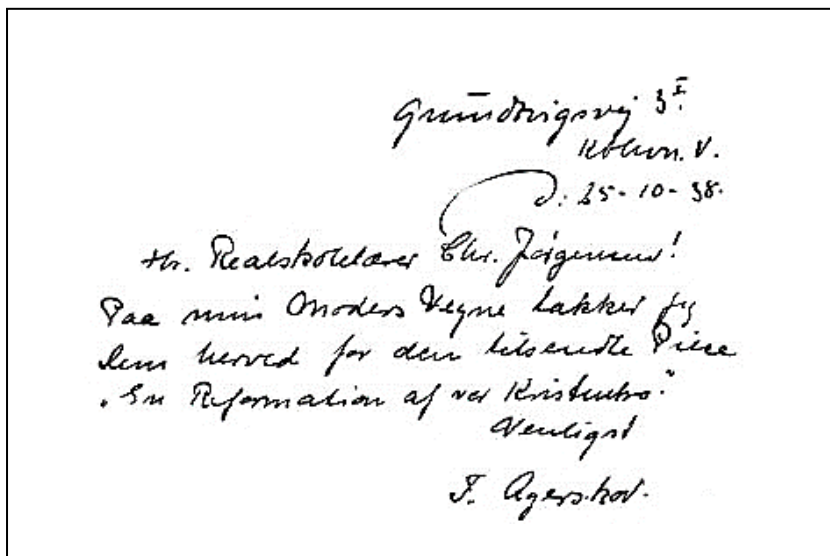 Grundtvigsvej 3 I.
Kbhvn. V.
d: 25-10-38.
Hr. Realskolelærer Chr. Jørgensen!
Paa min Moders Vegne takker jeg
Dem herved for den tilsendte Piece
"En Reformation af vor Kristentro."
Venligst
F. Agerskov.